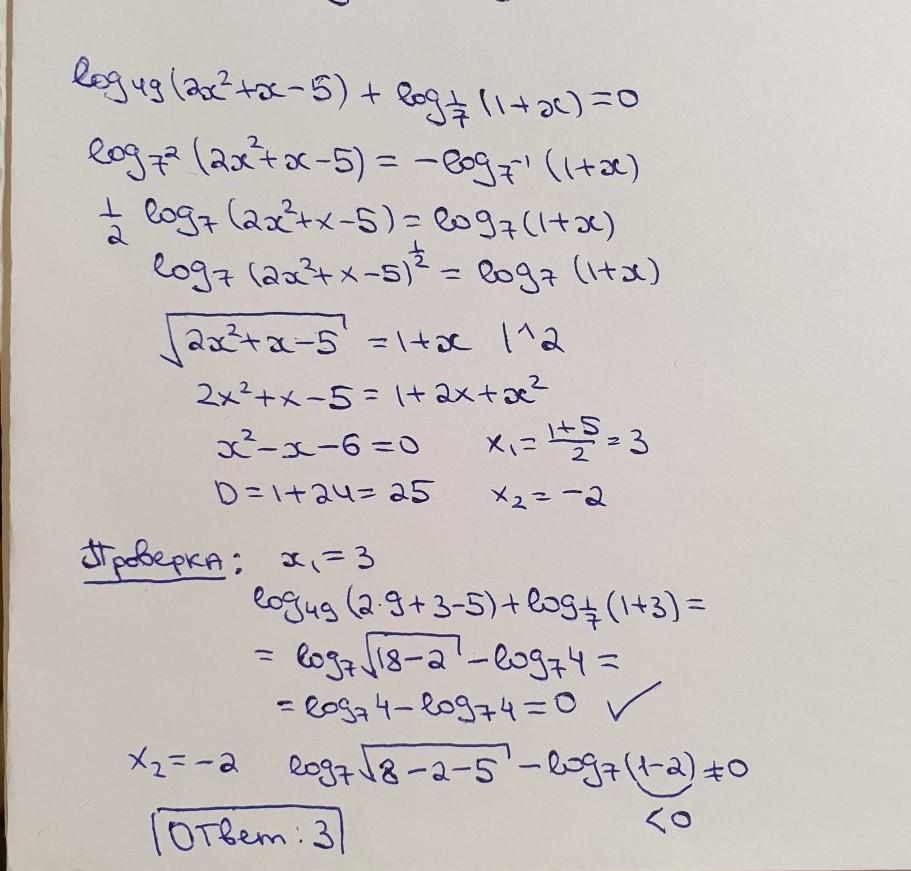 log₄₉(2x²+x-5) + log_{1/7}(1+x)=0
log_{7²}(2x²+x-5) = -log_{7⁻¹}(1+x)
1/2 log₇(2x²+x-5) = log₇(1+x)
log₇(2x²+x-5)^{1/2} = log₇(1+x)
√(2x²+x-5) = 1+x |^2
2x²+x-5 = 1+2x+x²
x²-x-6=0 x₁= (1+5)/2 = 3
D=1+24=25 x₂= -2
Проверка: x₁=3
log₄₉(2·9+3-5)+log_{1/7}(1+3)=
= log₇√(18-2) - log₇4 =
= log₇4 - log₇4 = 0 ✓
x₂=-2 log₇√(8-2-5) - log₇(1-2) ≠ 0
<0
Ответ: 3